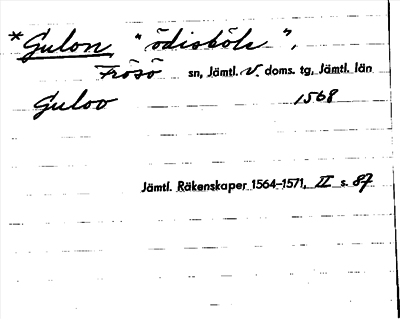 *Gulon "ödisböle",
Frösö sn, Jämtl. V. doms. tg, Jämtl. län
Guloo 1568
Jämtl. Räkenskaper 1564-1571, II s. 87